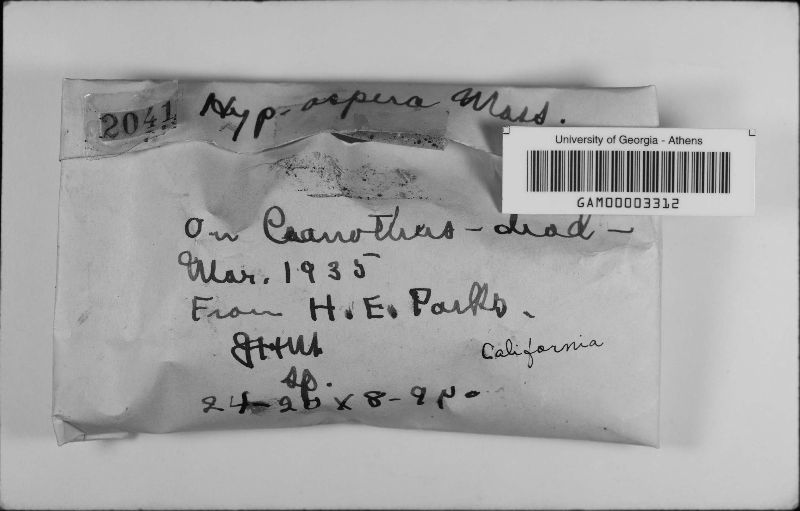 2041
Hyp. aspera Mass.
University of Georgia - Athens
GAM00003312
On Ceanothus - dead -
Mar. 1935
From H. E. Parks.
JHM
California
sp.
24-26 x 8-9 µ.